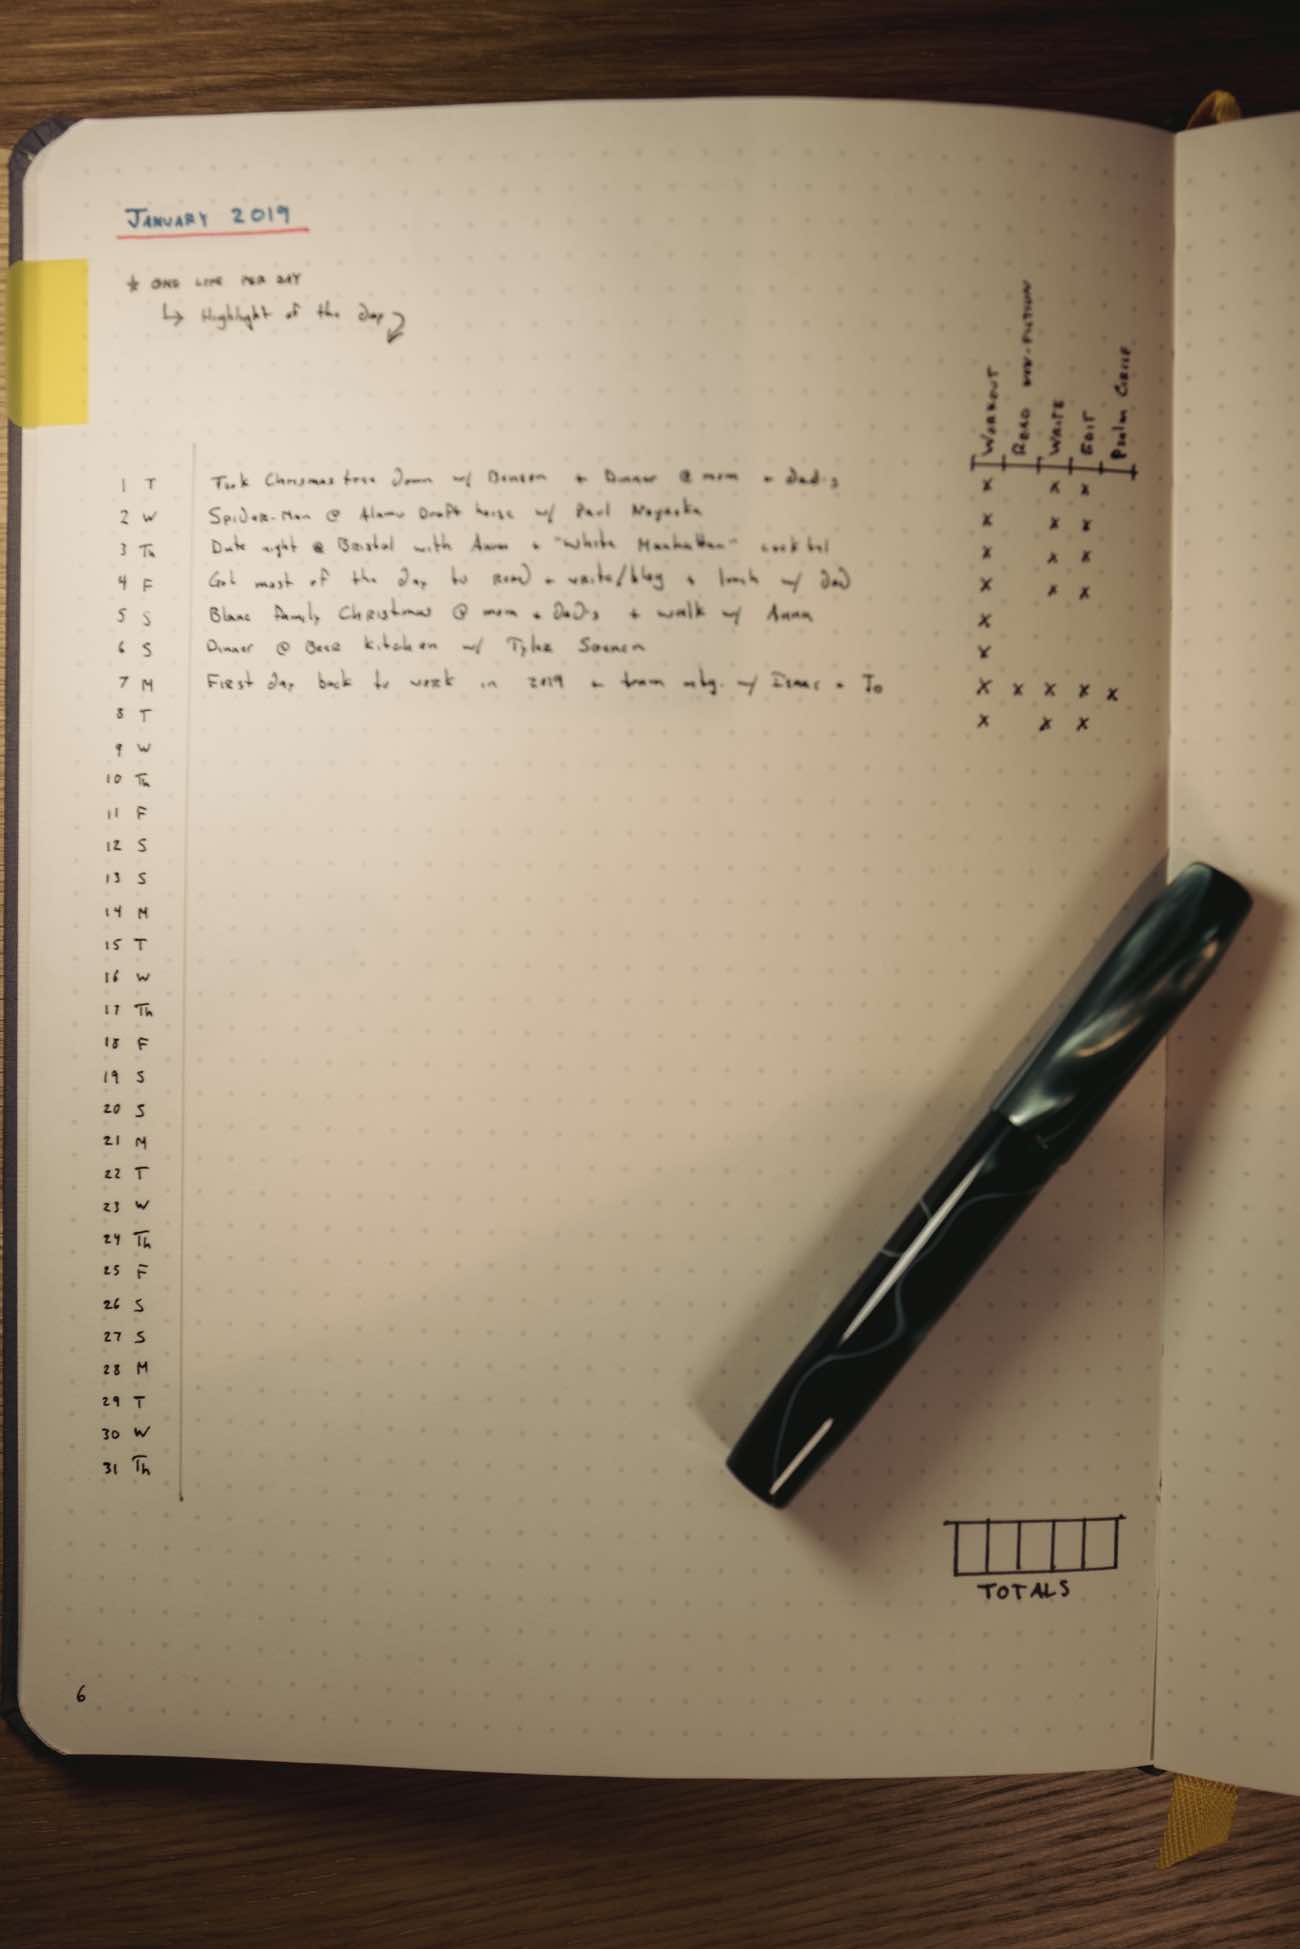 JANUARY 2019
* ONE LINE PER DAY
↳ Highlight of the day
WORKOUT
READ NON-FICTION
WRITE
EDIT
Psalm
1 T Took Christmas tree down w/ Benson + Dinner @ mom + dad's x x x
2 W Spider-Man @ Alamo Draft house w/ Paul x x x
3 Th Date night @ Bristol with Anna + "White Manhattan" cocktail x x x
4 F Got most of the day to read + write/blog + lunch w/ dad x x x
5 S Blanc Family Christmas @ mom + dad's + walk w/ Anna x
6 S Dinner @ Beer Kitchen w/ Tyler x
7 M First day back to work in 2019 + team mtg. w/ Isaac + Jo x x x x x
8 T x x x
9 W
10 Th
11 F
12 S
13 S
14 M
15 T
16 W
17 Th
18 F
19 S
20 S
21 M
22 T
23 W
24 Th
25 F
26 S
27 S
28 M
29 T
30 W
31 Th
TOTALS
6